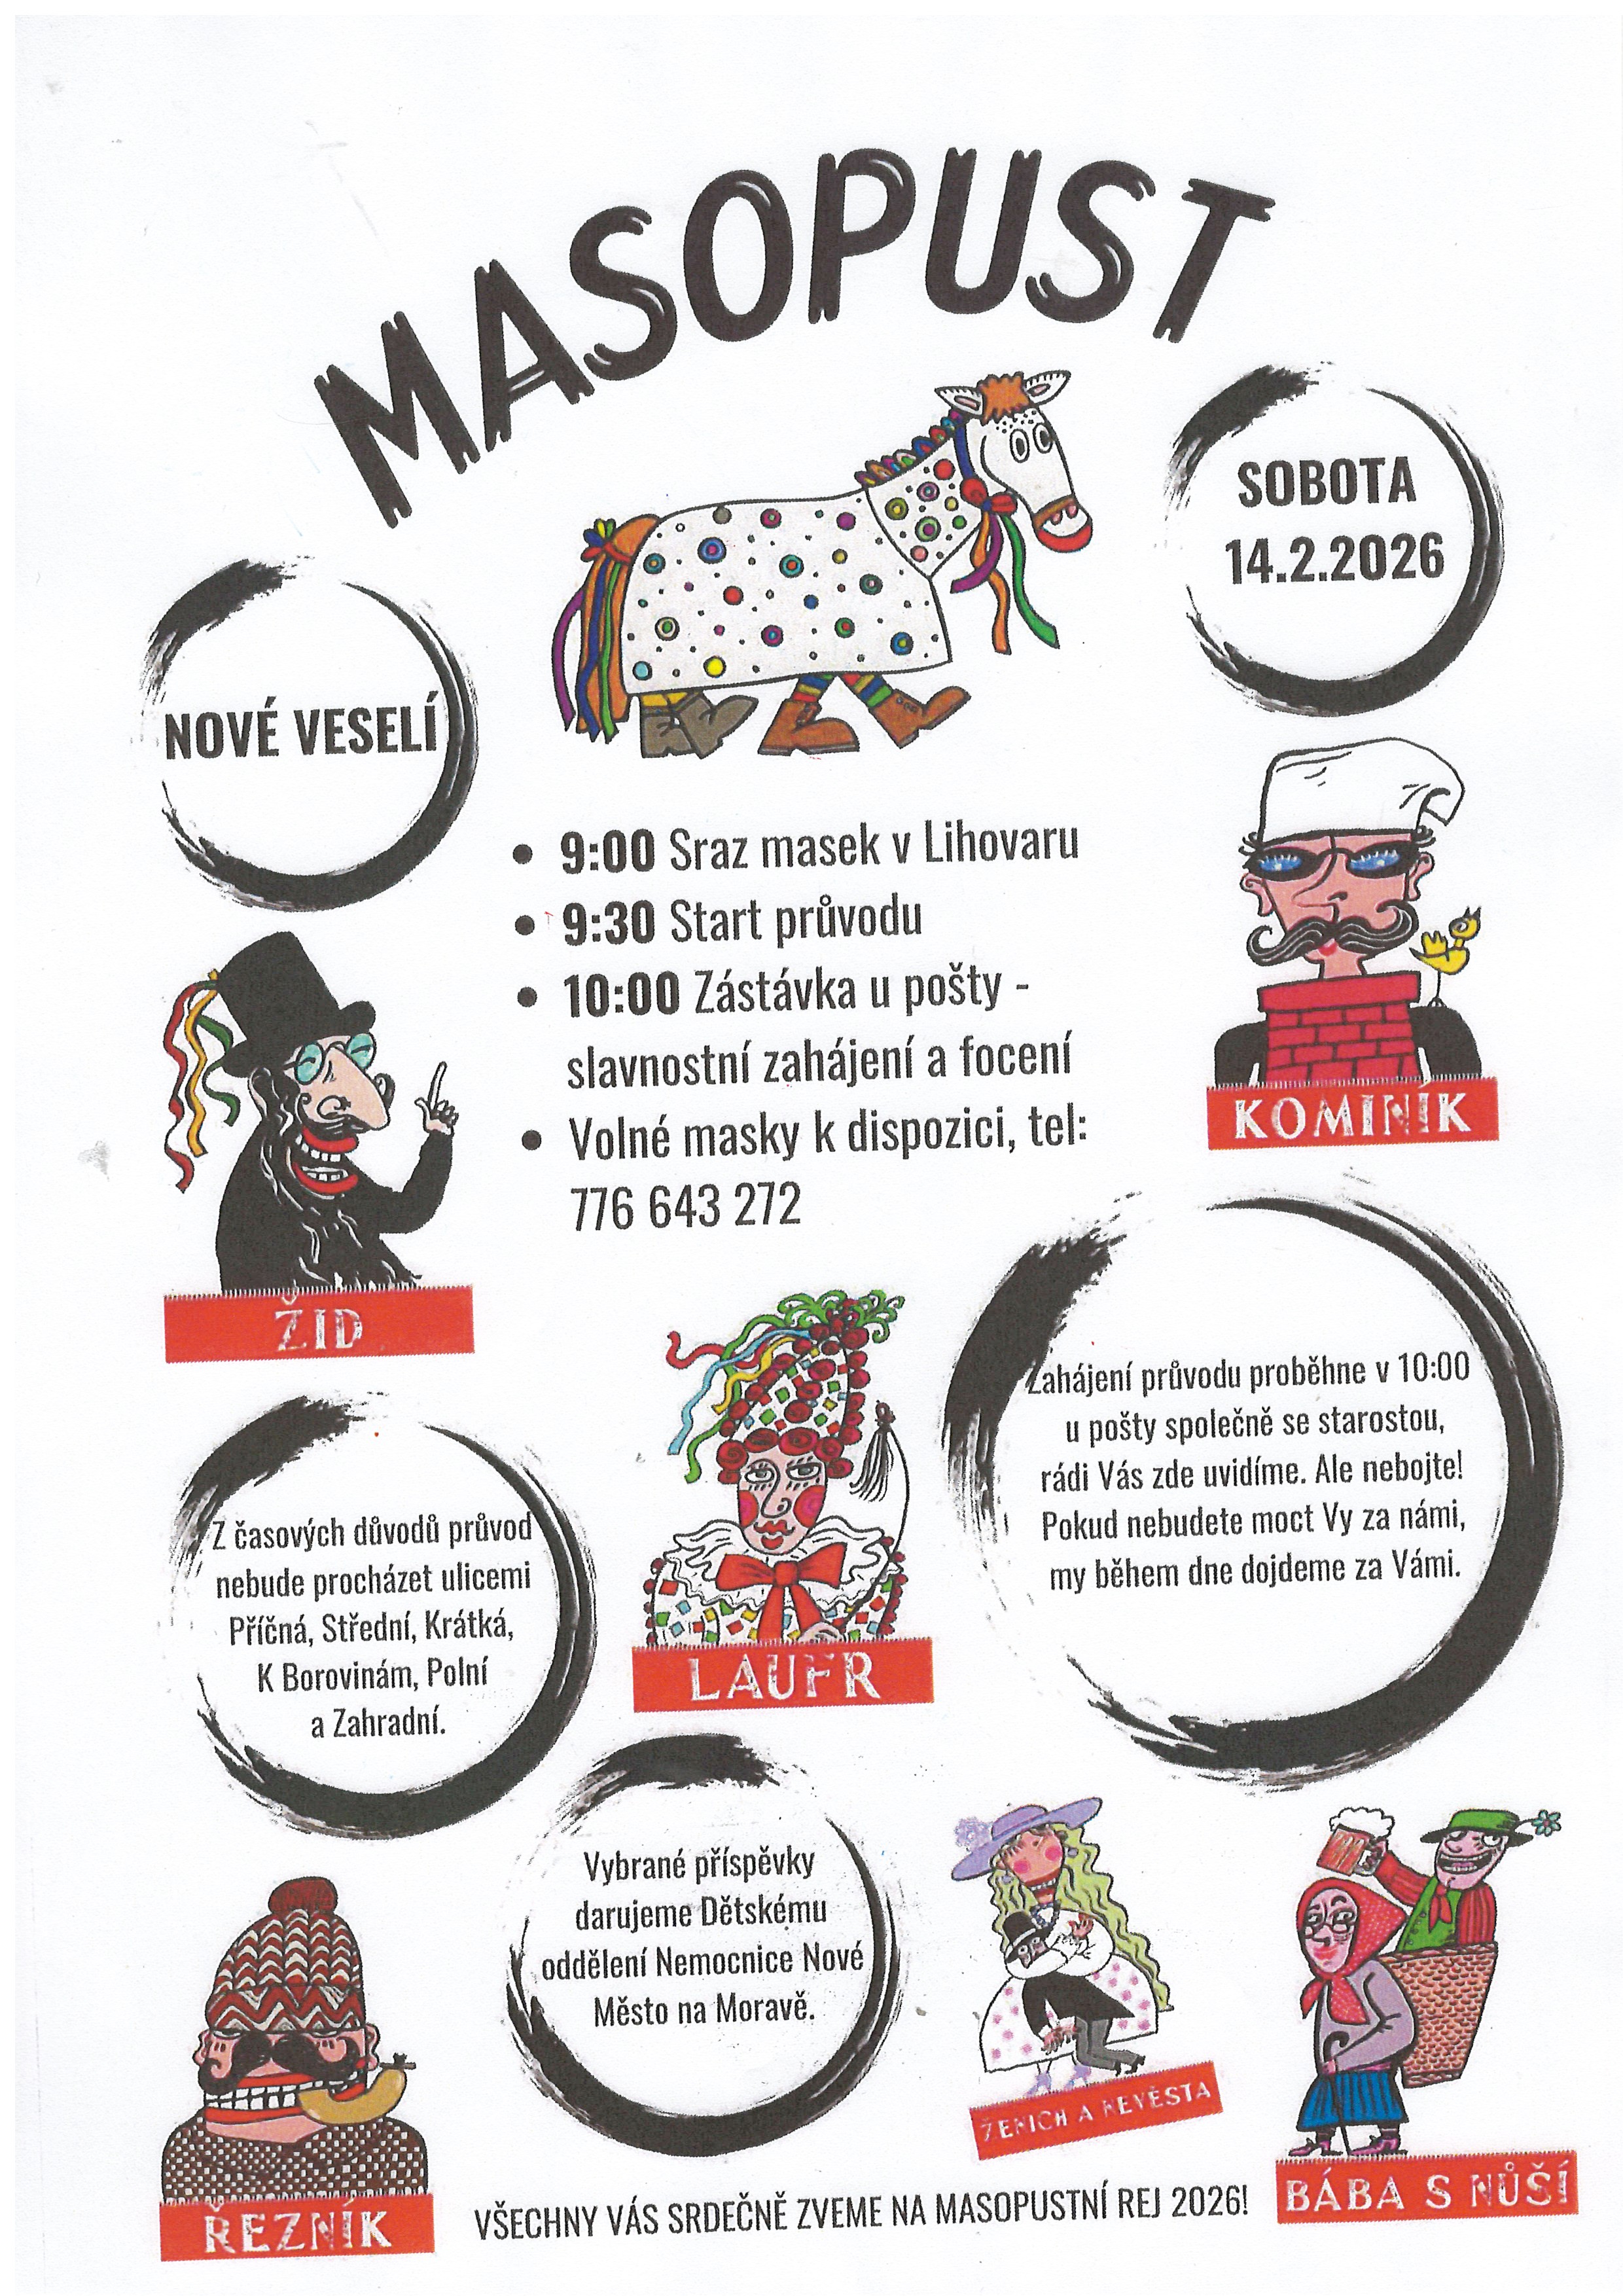 MASOPUST
SOBOTA
14.2.2026
NOVÉ VESELÍ
• 9:00 Sraz masek v Lihovaru
• 9:30 Start průvodu
• 10:00 Zástávka u pošty -
slavnostní zahájení a focení
• Volné masky k dispozici, tel:
776 643 272
KOMINÍK
ŽID
Zahájení průvodu proběhne v 10:00
u pošty společně se starostou,
rádi Vás zde uvidíme. Ale nebojte!
Pokud nebudete moct Vy za námi,
my během dne dojdeme za Vámi.
LAUFR
Z časových důvodů průvod
nebude procházet ulicemi
Příčná, Střední, Krátká,
K Borovinám, Polní
a Zahradní.
Vybrané příspěvky
darujeme Dětskému
oddělení Nemocnice Nové
Město na Moravě.
ŽENICH A NEVĚSTA
BÁBA S NŮŠÍ
ŘEZNÍK
VŠECHNY VÁS SRDEČNĚ ZVEME NA MASOPUSTNÍ REJ 2026!